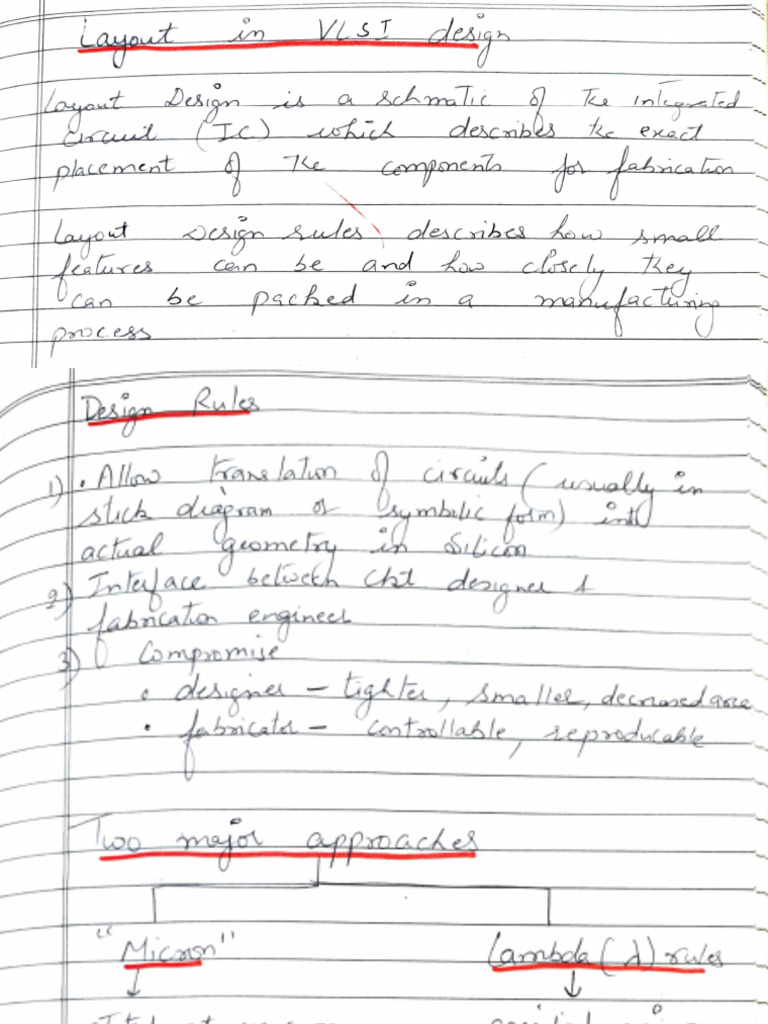 Layout in VLSI design
Layout Design is a schmatic of the integrated
circuit (IC) which describes the exact
placement of the components for fabrication
Layout Design rules describes how small
features can be and how closely they
can be packed in a manufacturing
process
Design Rules
1) • Allow translation of circuits (usually in
stick diagram or symbolic form) into
actual geometry in Silicon
2) Interface between ckt designer &
fabrication engineer
3) Compromise
• designer – tighter, smaller, decreased area
• fabricator – controllable, reproducable
Two major approaches
"Micron" Lambda (λ) rules